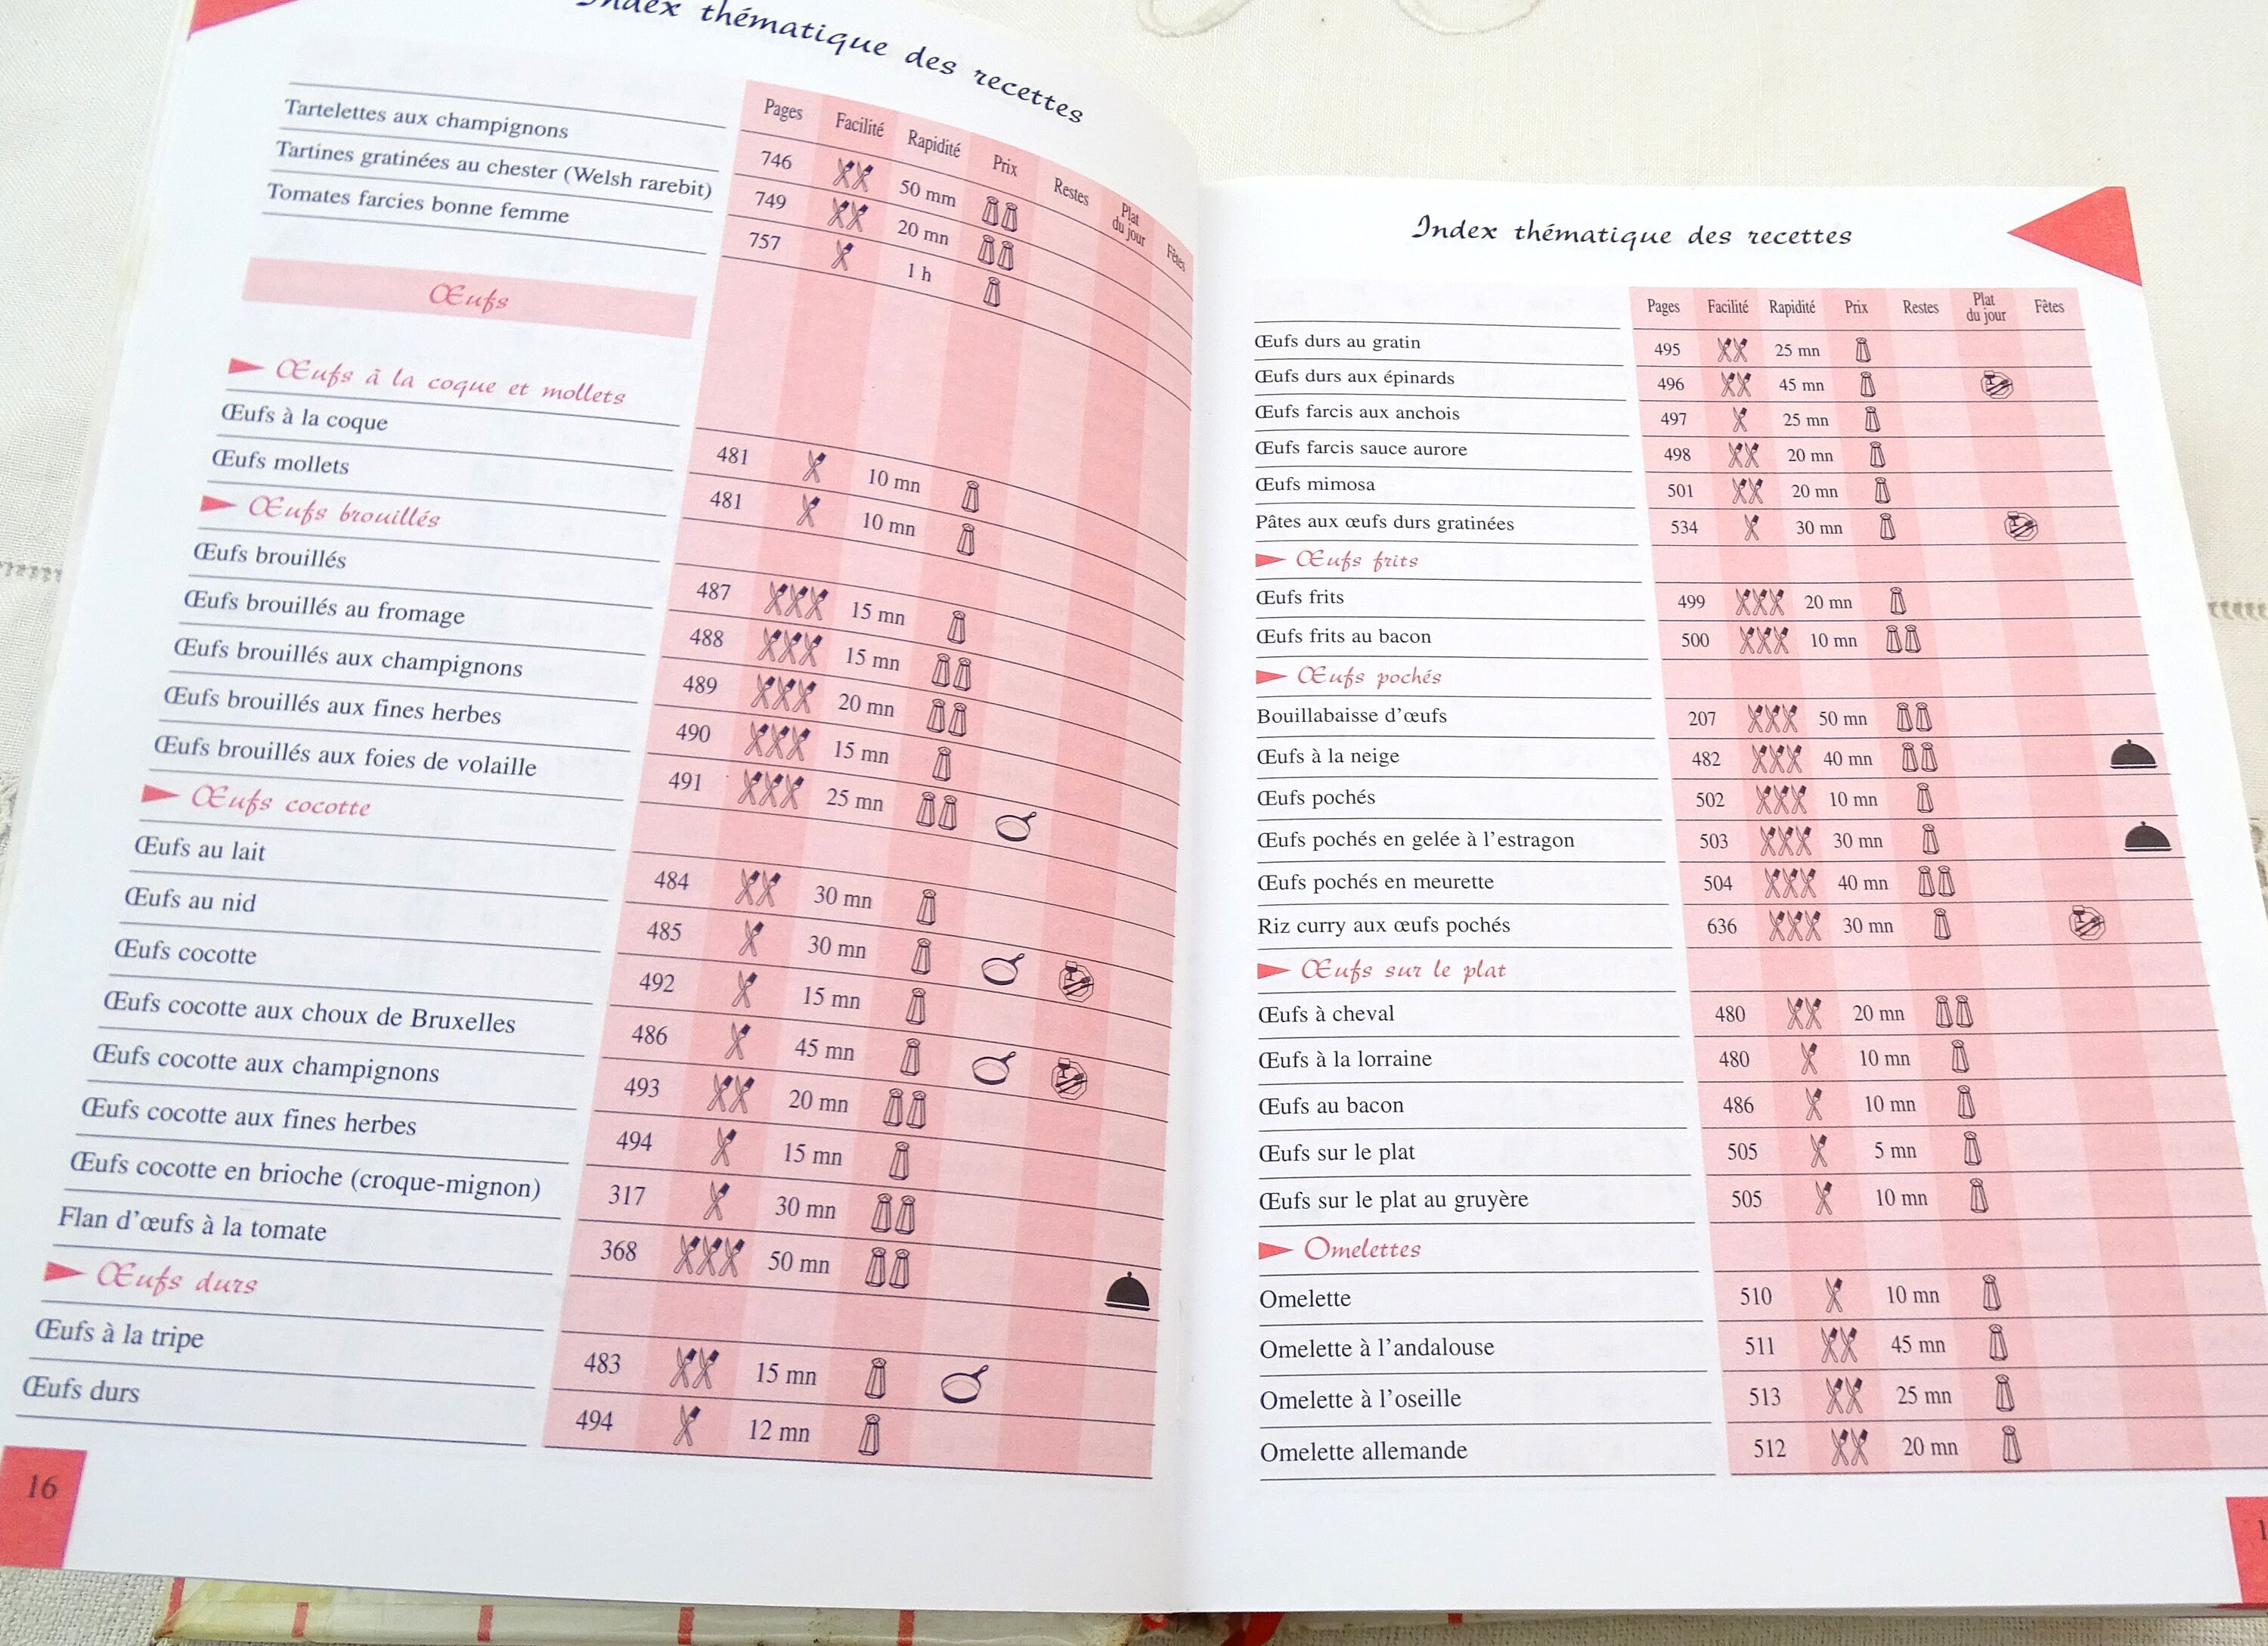 Index thématique des recettes
Pages Facilité Rapidité Prix Restes Plat du jour Fêtes
Tartelettes aux champignons 746 50 mm
Tartines gratinées au chester (Welsh rarebit) 749 20 mn
Tomates farcies bonne femme 757 1 h
Œufs
Œufs à la coque et mollets
Œufs à la coque 481 10 mn
Œufs mollets 481 10 mn
Œufs brouillés
Œufs brouillés 487 15 mn
Œufs brouillés au fromage 488 15 mn
Œufs brouillés aux champignons 489 20 mn
Œufs brouillés aux fines herbes 490 15 mn
Œufs brouillés aux foies de volaille 491 25 mn
Œufs cocotte
Œufs au lait 484 30 mn
Œufs au nid 485 30 mn
Œufs cocotte 492 15 mn
Œufs cocotte aux choux de Bruxelles 486 45 mn
Œufs cocotte aux champignons 493 20 mn
Œufs cocotte aux fines herbes 494 15 mn
Œufs cocotte en brioche (croque-mignon) 317 30 mn
Flan d'œufs à la tomate 368 50 mn
Œufs durs
Œufs à la tripe 483 15 mn
Œufs durs 494 12 mn
16
Index thématique des recettes
Pages Facilité Rapidité Prix Restes Plat du jour Fêtes
Œufs durs au gratin 495 25 mn
Œufs durs aux épinards 496 45 mn
Œufs farcis aux anchois 497 25 mn
Œufs farcis sauce aurore 498 20 mn
Œufs mimosa 501 20 mn
Pâtes aux œufs durs gratinées 534 30 mn
Œufs frits
Œufs frits 499 20 mn
Œufs frits au bacon 500 10 mn
Œufs pochés
Bouillabaisse d'œufs 207 50 mn
Œufs à la neige 482 40 mn
Œufs pochés 502 10 mn
Œufs pochés en gelée à l'estragon 503 30 mn
Œufs pochés en meurette 504 40 mn
Riz curry aux œufs pochés 636 30 mn
Œufs sur le plat
Œufs à cheval 480 20 mn
Œufs à la lorraine 480 10 mn
Œufs au bacon 486 10 mn
Œufs sur le plat 505 5 mn
Œufs sur le plat au gruyère 505 10 mn
Omelettes
Omelette 510 10 mn
Omelette à l'andalouse 511 45 mn
Omelette à l'oseille 513 25 mn
Omelette allemande 512 20 mn